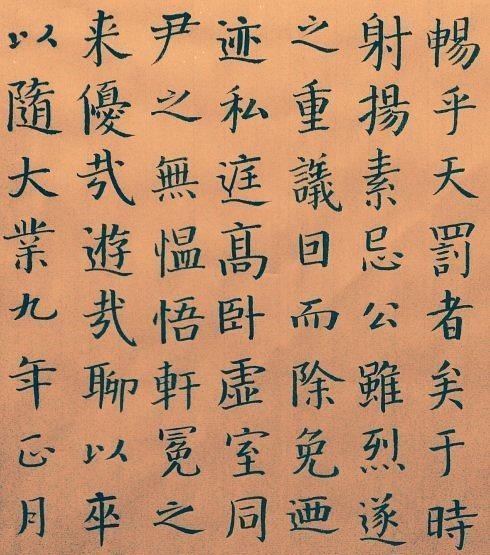 暢乎天罰者矣于時
射揚素忌公雖烈遂
之重議囙而除免迺
迹私庭髙卧虛室同
尹之無愠悟軒冕之
来優哉遊哉聊以卒
以隨大業九年正月